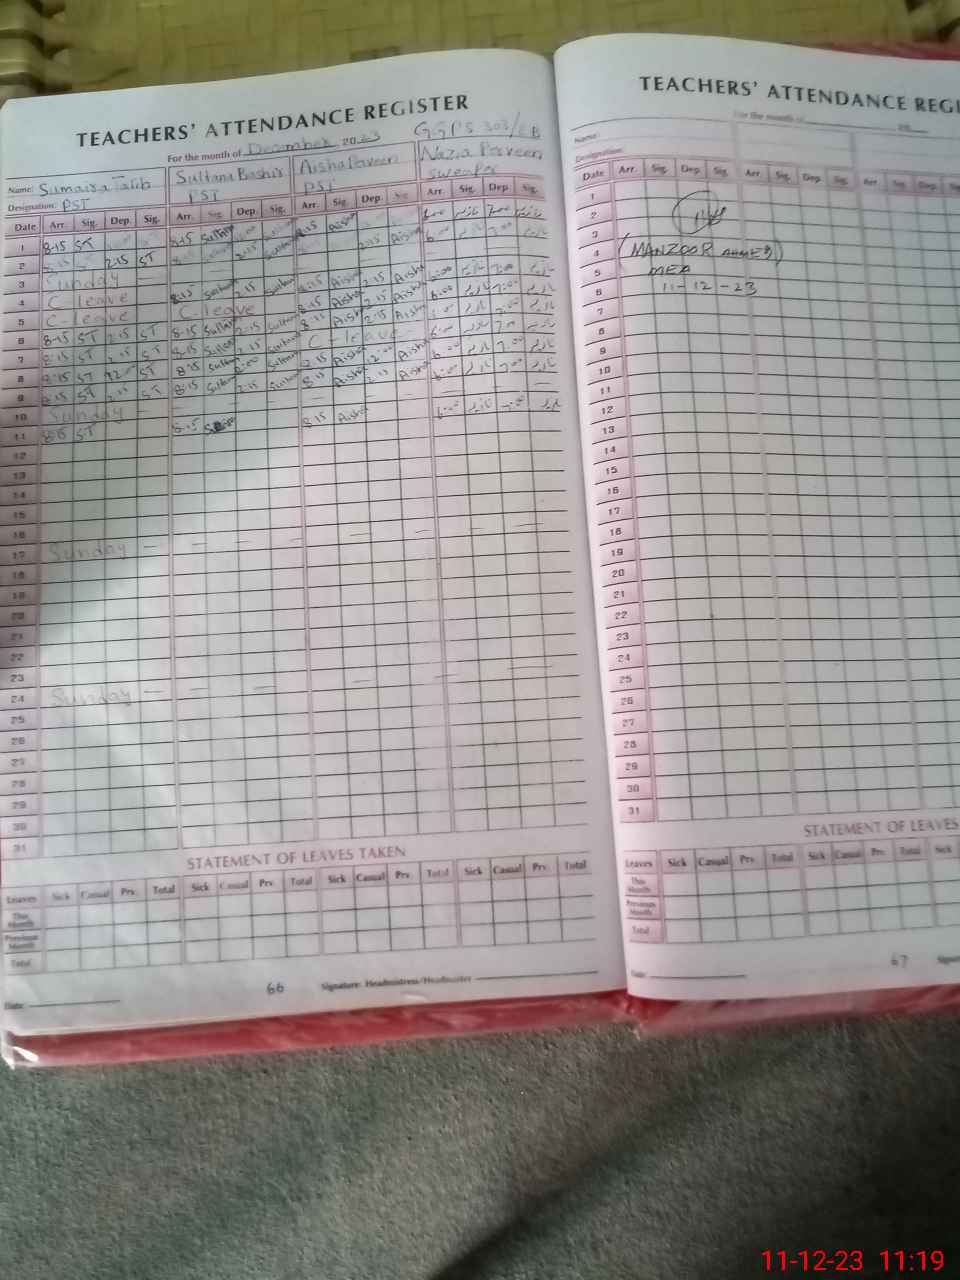 TEACHERS' ATTENDANCE REGISTER
GGPS 303/EB
For the month of December 2023
Name: Sumaira Talib Sultana Bashir Aisha Parveen Nazia Perveen
Designation: PST PST PST sweaper
Date Arr. Sig. Dep. Sig. Arr. Sig. Dep. Sig. Arr. Sig. Dep. Sig. Arr. Sig. Dep. Sig.
1 8-15 ST 8-15 Sultana 8-15 Aisha 7:00
2 8-15 ST 2-15 ST 2-15 Aisha 6:00 7:00
3 Sunday
4 C-leave 8-15 Sultana 2-15 Sultana 8-15 Aisha 2-15 Aisha 6:00 7:00
5 C-leave C-leave 8-15 Aisha 2-15 Aisha 6:00 7:00
6 8-15 ST 2-15 ST 8-15 Sultana 2-15 Sultana 8-15 Aisha 2-15 Aisha 6:00 7:00
7 8-15 ST 2-15 ST 8-15 Sultana 2-15 Sultana C-leave 6:00 7:00
8 8-15 ST 12:00 ST 8-15 Sultana 12:00 Sultana 8-15 Aisha 12:00 Aisha 6:00 7:00
9 8-15 ST 2-15 ST 8-15 Sultana 2-15 Sultana 8-15 Aisha 2-15 Aisha 6:00 7:00
10 Sunday — — — —
11 8-15 ST 8-15 8-15 Aisha 6:00 7:00
12
13
14
15
16
17 Sunday — — — — — — — —
18
19
20
21
22
23
24 Sunday — — — — — —
25
26
27
28
29
30
31
STATEMENT OF LEAVES TAKEN
Leaves Sick Casual Prv. Total Sick Casual Prv. Total Sick Casual Prv. Total Sick Casual Prv. Total
This Month
Previous Month
Total
Date: 66 Signature: Headmistress/Headmaster
TEACHERS' ATTENDANCE REGI
For the month of 20
Name:
Designation:
Date Arr. Sig. Dep. Sig. Arr. Sig. Dep. Sig. Arr. Sig. Dep. Sig
1
2
3
4 (MANZOOR AHMED)
5 MEA
6 11-12-23
7
8
9
10
11
12
13
14
15
16
17
18
19
20
21
22
23
24
25
26
27
28
29
30
31
STATEMENT OF LEAVES
Leaves Sick Casual Prv. Total Sick Casual Prv. Total Sick
This Month
Previous Month
Total
Date: 67 Signa
11-12-23 11:19